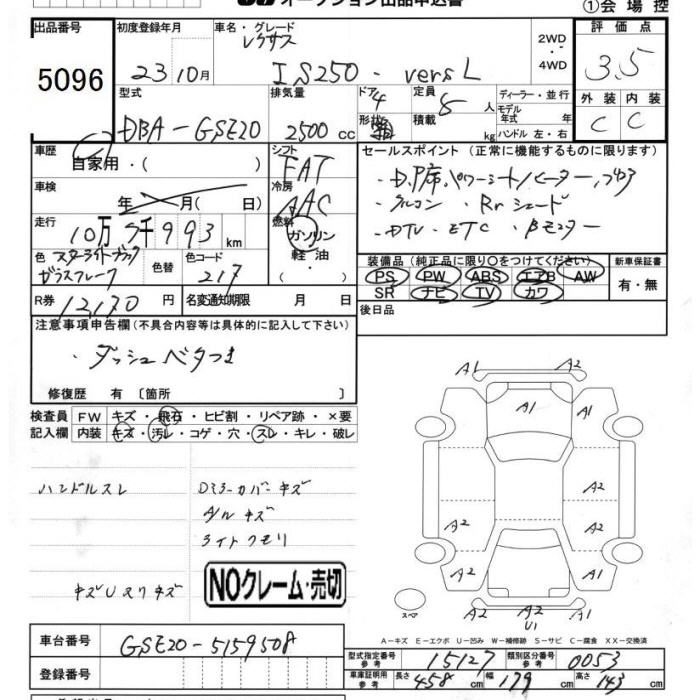 オークション出品申込書
①会場控
出品番号 初度登録年月 車名・グレード 2WD・4WD 評価点
5096 23 10月 レクサス IS250. versL 3.5
型式 排気量 ドア 定員 ディーラー・並行 外装 内装
DBA-GSE20 2500cc 4 5人 モデル年式 年 C C
形状 積載 kg ハンドル 左・右
車歴 シフト セールスポイント (正常に機能するものに限ります)
自家用・( ) FAT
車検 冷房
年 月( 日) AAC
・D,P席パワーシート/ヒーター,フタ3
・クルコン ・Rrシェード
・DTV ・ETC ・Bモニター
走行 燃料
10万7千993km ガソリン・軽油・( )
色 色替 色コード
スターライトブラックガラスフレーク 217
装備品 (純正品に限り○をつけてください) 新車保証書
PS PW ABS エアB AW 有・無
SR ナビ TV カワ
R券 12,170円 名変通知期限 月 日
後日品
注意事項申告欄(不具合内容等は具体的に記入して下さい)
・ダッシュベタつき
修復歴 有 〔箇所 〕
検査員記入欄 FW キズ・飛石・ヒビ割・リペア跡・×要
内装 キズ・汚レ・コゲ・穴・スレ・キレ・破レ
ハンドルスレ Dミラーカバーキズ
A/Wキズ
ライトクモリ
キズUスリキズ
NOクレーム・売切
A1 A2
A1 A1
A2 A2
A2
A2 A2
A2
U1
スペア
A-キズ E-エクボ U-凹み W-補修跡 S-サビ C-腐食 XX-交換済
車台番号 GSE20-5159508
登録番号
型式指定番号 参考 15127 類別区分番号 参考 0053
車庫証明用 参考 長さ 458cm 幅 179cm 高さ 143cm